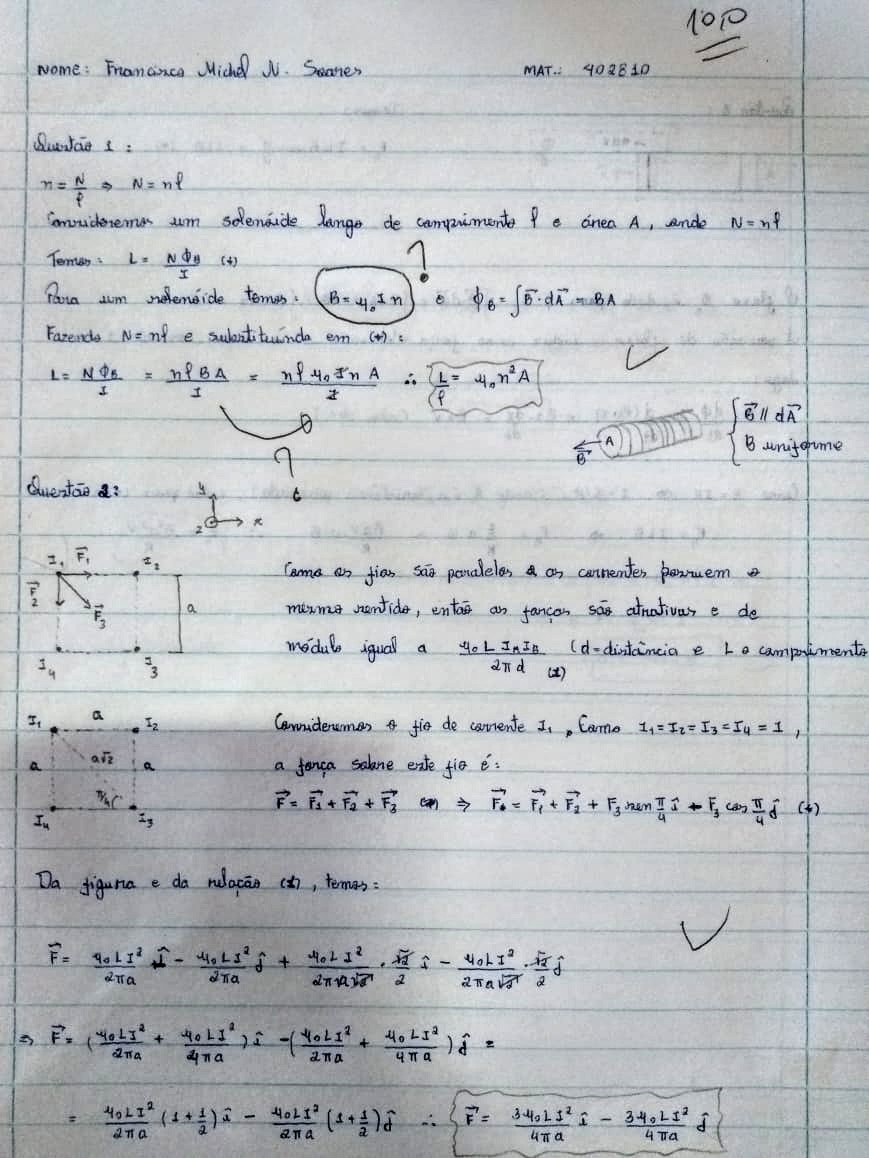 10,0
NOME: Francisco Michel N. Soares MAT.: 402810
Questão 1:
n = N/l ⇒ N = nl
Consideremos um solenóide longo de comprimento l e área A, onde N = nl
Temos: L = NΦB/I (*)
?
Para um solenóide temos: B = μ₀ I n e ϕB = ∫B⃗·dA⃗ = BA
Fazendo N = nl e substituindo em (*):
L = NΦB/I = nl BA/I = nl μ₀ I n A/I ∴ L/l = μ₀n²A
B⃗ A { B⃗ // dA⃗
B uniforme
?
Questão 2: y x z
I₁ F⃗₁ I₂ F⃗₂ F⃗₃ a I₄ I₃
Como os fios são paralelos e as correntes possuem o
mesmo sentido, então as forças são atrativas e de
módulo igual a μ₀ L IA IB/2πd (1) (d = distância e L o comprimento
I₁ a I₂ a a√2 a π/4 I₄ I₃
Consideremos o fio de corrente I₁. Como I₁ = I₂ = I₃ = I₄ = I,
a força sobre este fio é:
F⃗ = F⃗₁ + F⃗₂ + F⃗₃ ⇒ F⃗ = F⃗₁ + F⃗₂ + F₃ sen π/4 î - F₃ cos π/4 ĵ (*)
Da figura e da relação (1), temos:
F⃗ = μ₀LI²/2πa î - μ₀LI²/2πa ĵ + μ₀LI²/2πa√2 · √2/2 î - μ₀LI²/2πa√2 · √2/2 ĵ
⇒ F⃗ = (μ₀LI²/2πa + μ₀LI²/4πa) î - (μ₀LI²/2πa + μ₀LI²/4πa) ĵ =
= μ₀LI²/2πa (1 + 1/2) î - μ₀LI²/2πa (1 + 1/2) ĵ ∴ F⃗ = 3μ₀LI²/4πa î - 3μ₀LI²/4πa ĵ